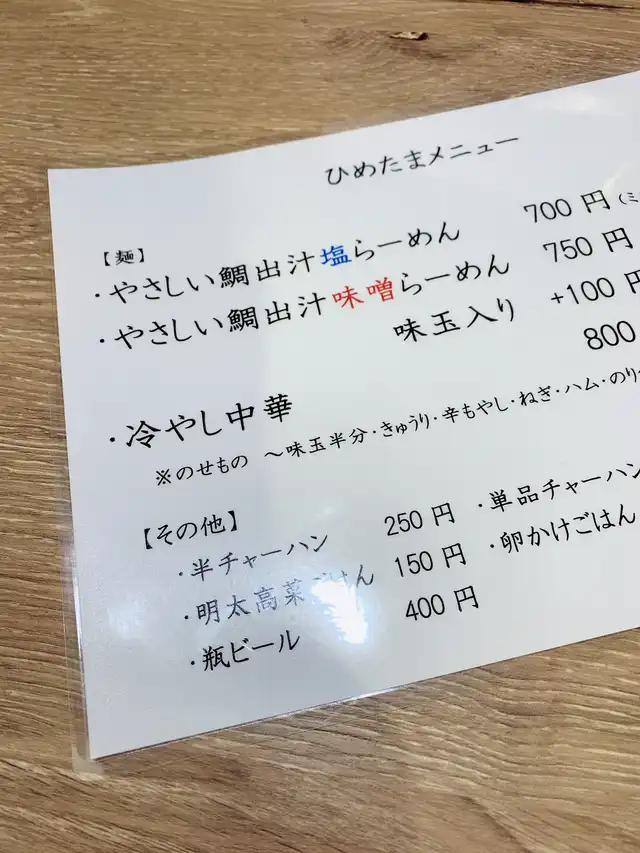 ひめたまメニュー
【麺】
・やさしい鯛出汁塩らーめん 700円（ミ
・やさしい鯛出汁味噌らーめん 750円
味玉入り +100円
・冷やし中華 800
※のせもの ～味玉半分・きゅうり・辛もやし・ねぎ・ハム・のり
【その他】
・半チャーハン 250円 ・単品チャーハン
・明太高菜ごはん 150円 ・卵かけごはん
・瓶ビール 400円